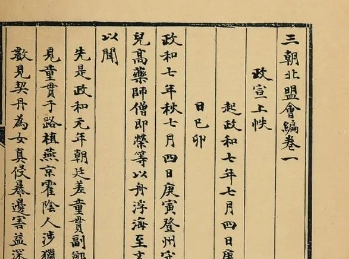 三朝北盟會編卷一
政宣上帙
起政和七年七月四日庚
日己卯
政和七年秋七月四日庚寅登州守
兒高藥師僧郎榮等以舟浮海至文
以聞
先是政和元年朝廷差童貫副鄭
見童貫于路植燕京霍陰人涉獵
數見契丹為女真侵暴邊害益深